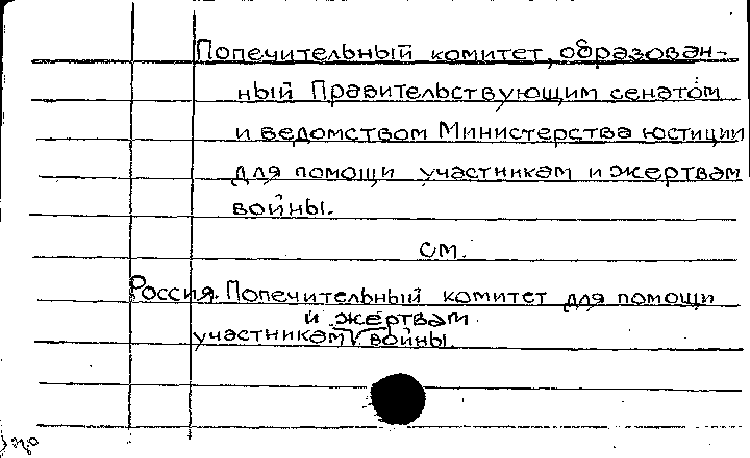 Попечительный комитет, образован-
ный Правительствующим сенатом
и ведомством Министерства юстиции
для помощи участникам и жертвам
войны.
см.
Россия. Попечительный комитет для помощи
и жертвам
участникам V войны.